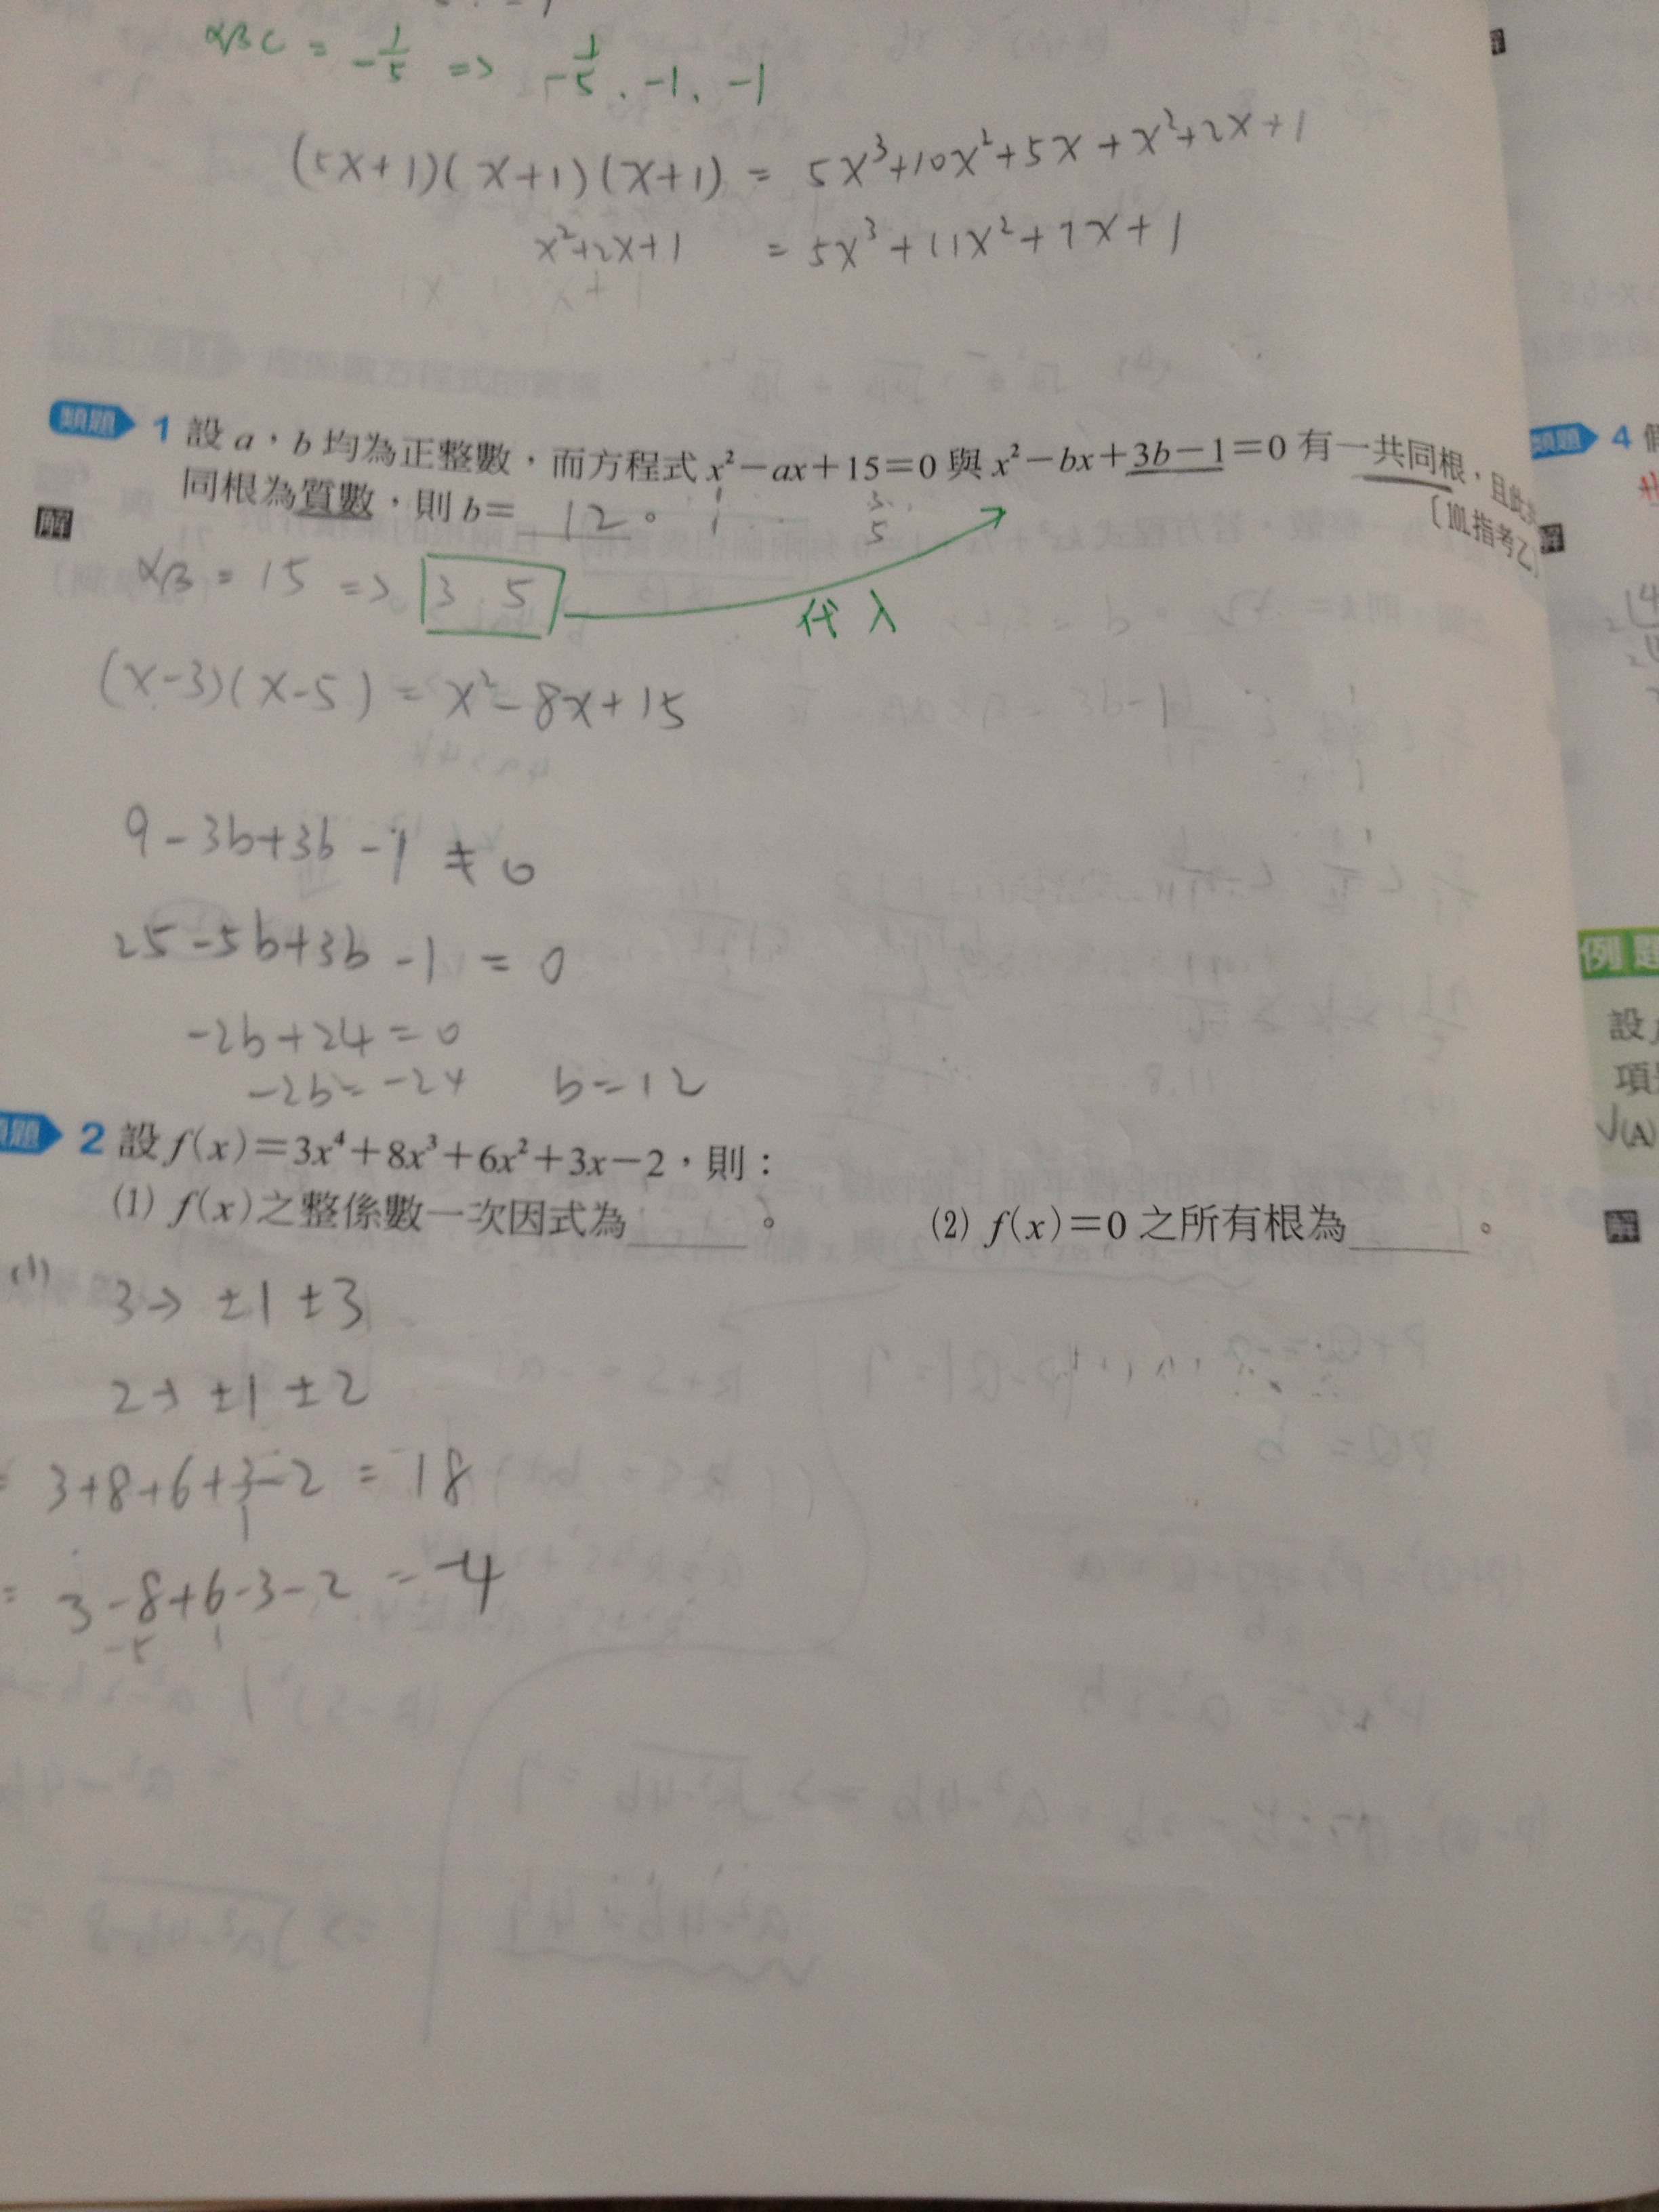 αβc = -1/5 => -1/5、-1、-1
(5x+1)(x+1)(x+1) = 5x³+10x²+5x+x²+2x+1
x²+2x+1 = 5x³+11x²+7x+1
類題 1 設 a，b 均為正整數，而方程式 x²－ax＋15＝0 與 x²－bx＋3b－1＝0 有一共同根，且此共
同根為質數，則 b＝ 12 。
〔101.指考乙〕
解
αβ = 15 => 3、5
代入
(x-3)(x-5) = x²-8x+15
9-3b+3b-1 ≠ 0
25-5b+3b-1 = 0
-2b+24=0
-2b=-24 b=12
題 2 設 f(x)＝3x⁴＋8x³＋6x²＋3x－2，則：
(1) f(x)之整係數一次因式為______。
(2) f(x)＝0 之所有根為______。
(1) 3→ ±1 ±3
2→ ±1 ±2
= 3+8+6+3-2 = 18
1
= 3-8+6-3-2 = -4
-5 1
類題 4
解
例題
設
項
√(A)
解